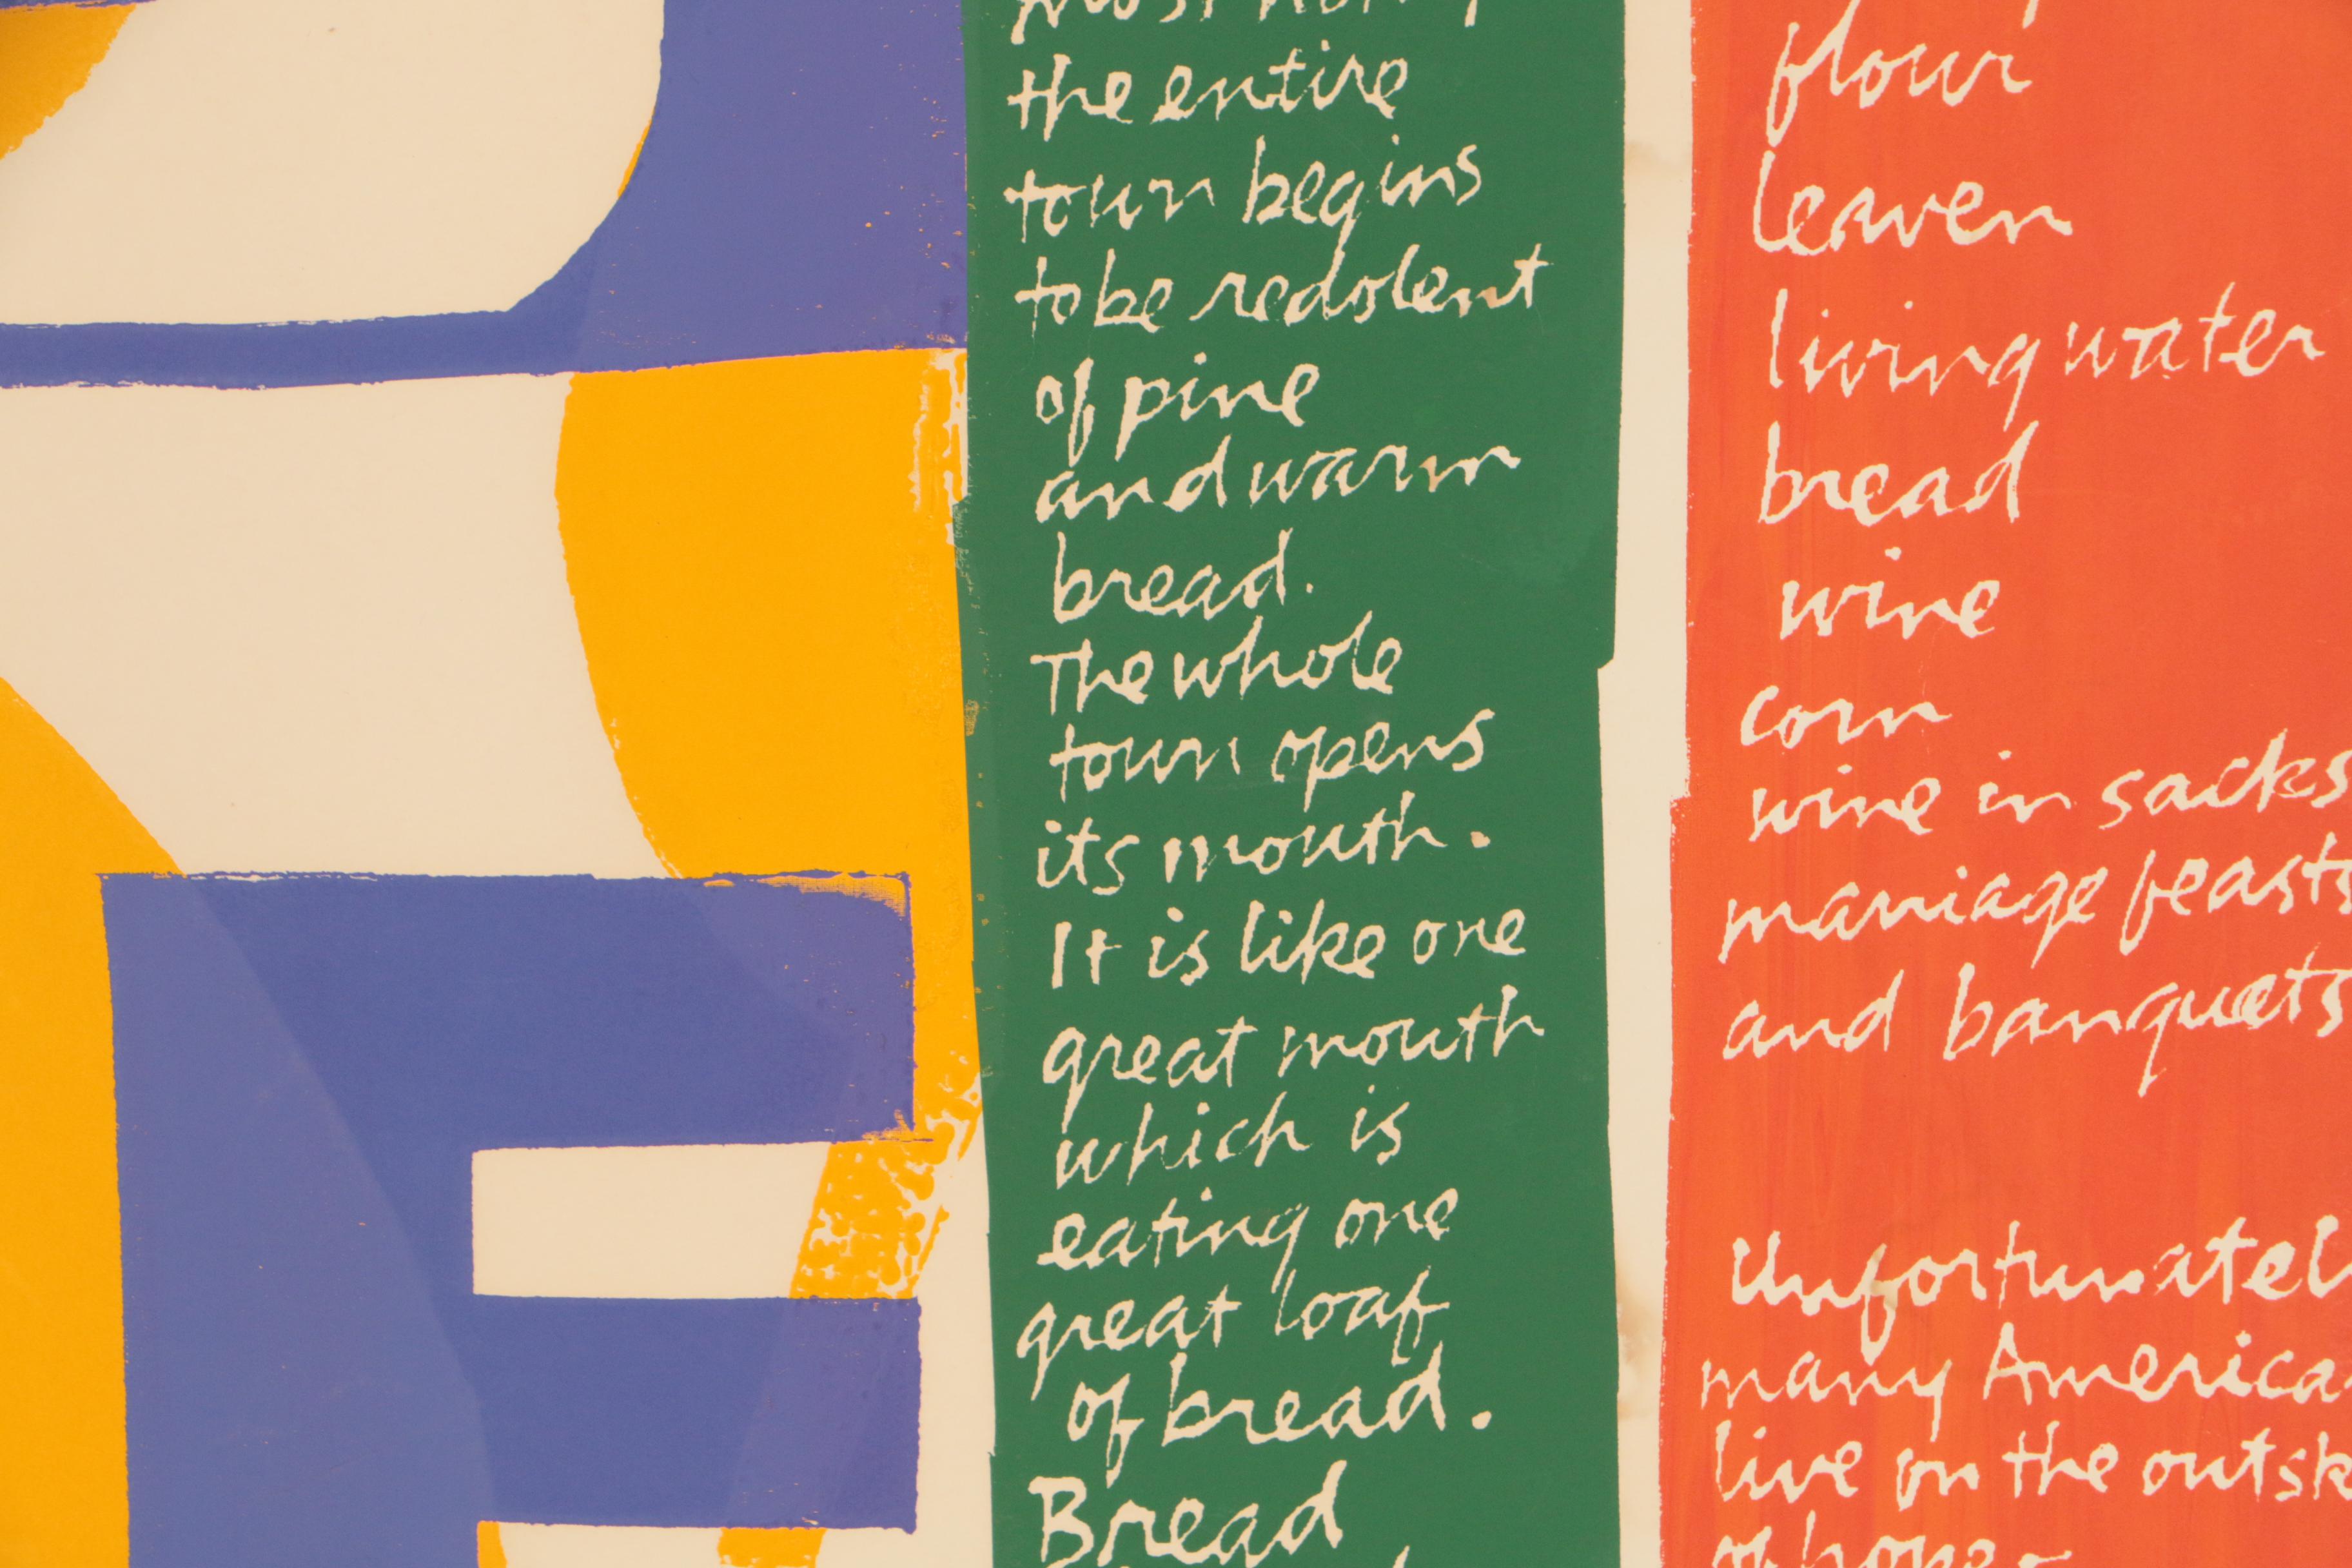 the entire
town begins
to be redolent
of pine
and warm
bread.
The whole
town opens
its mouth.
It is like one
great mouth
which is
eating one
great loaf
of bread.
Bread
flour
leaven
living water
bread
wine
corn
wine in sacks
marriage feasts
and banquets
Unfortunatel
many America
live on the outsk
of hope